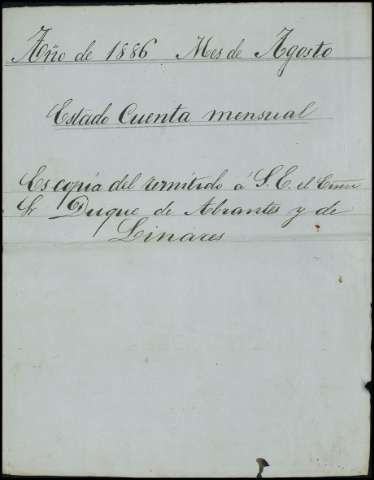 Año de 1886 Mes de Agosto
Estado Cuenta mensual
Es copia del remitido á S.E. el Exmo
Sr Duque de Abrantes y de
Linares